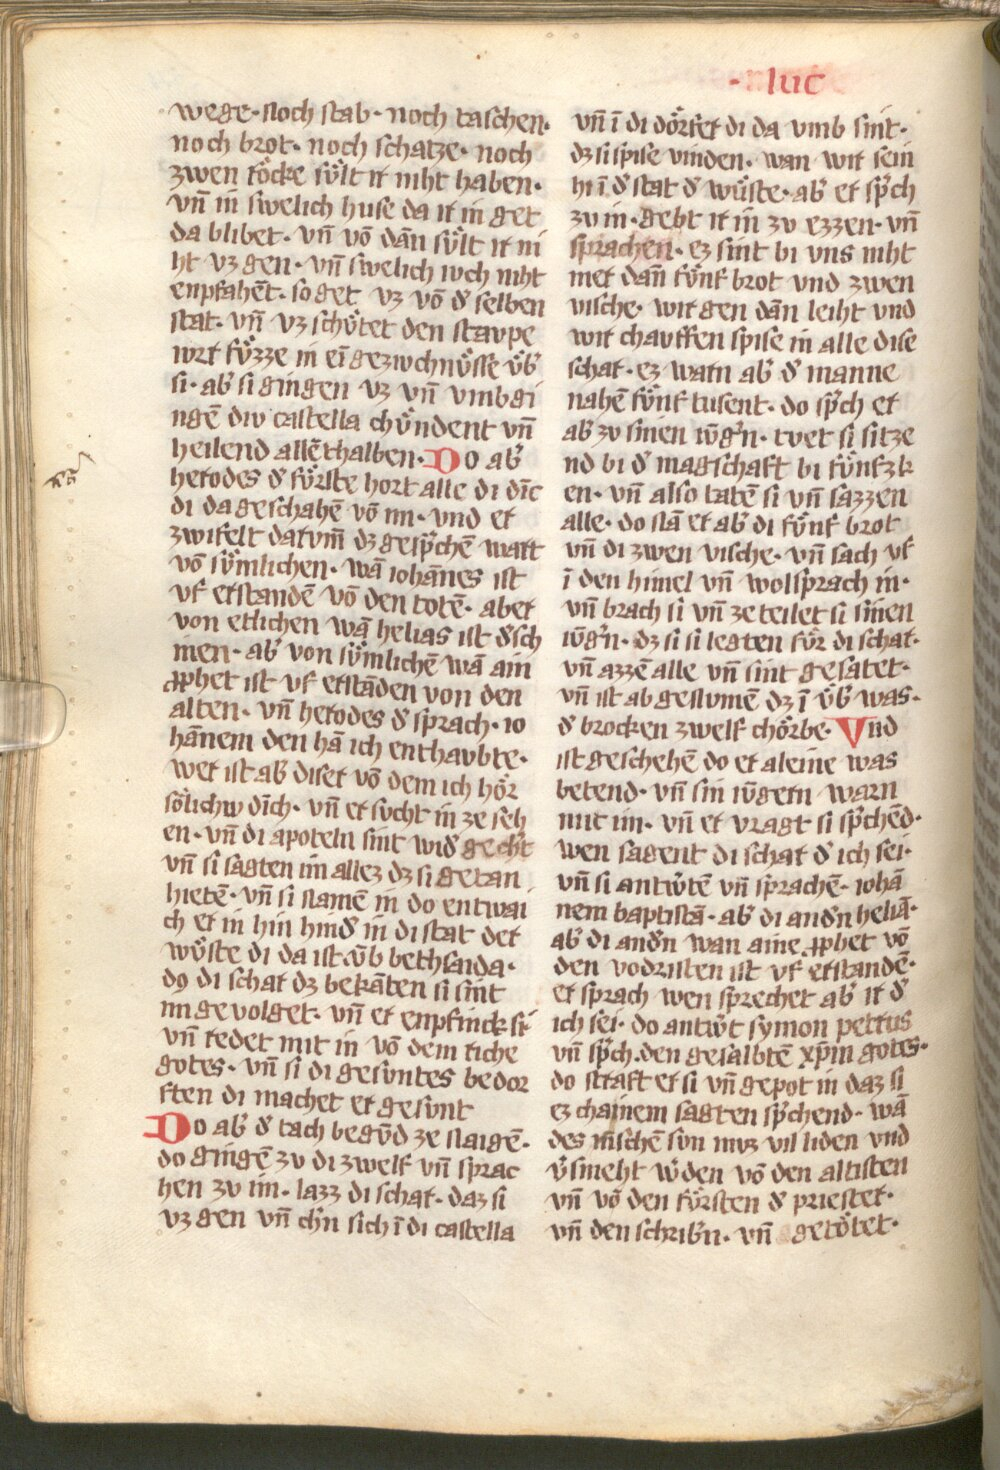 · luc
wege · noch stab · noch taschen ·
noch brot · noch schatze · noch
zwen roͤcke suͤlt ir niht haben ·
vn̄ in swelich huse da ir in get
da blibet · vn̄ vō dān suͤlt ir ni
ht vz gen · vn̄ swelich iuch niht
enpfahēt · so get vz vō d̾ selben
stat · vn̄ vz schuͤtet den stavpe
iwrr fuͤzze in eī gezivchnuͤsse vͤb̾
si · ab̾ si gingen vz vn̄ vmb gi
ngē div castella chuͤndent vn̄
heilend allēthalben · Do ab̾
herodes d̾ fuͤrste hort alle di dīc
di da geschahē vō im · vnd er
zwifelt darvm̄ dz gesp̾chē wart
vō suͤmlichen · wā iohānes ist
vf erstandē vō den totē · aber
von etlichen wā helias ist d̾sch
inen · ab̾ von suͤmlichē wā ain
ꝓphet ist vf erstāden von den
alten · vn̄ herodes d̾ sprach · io
hānem den hā ich enthavbte ·
wer ist ab̾ diser vō dem ich hoͤr
soͤlichiv dīch · vn̄ er svcht in ze seh
en · vn̄ di apoteln sint wid̾ gech̾t
vn̄ si sagten im allez dz si getan
hietē · vn̄ si namē in do entwai
ch er in hin hind̾ in di stat der
wuͤste di da ist vͤb bethsaida ·
do di schar dz bekāten si sint
im gevolget · vn̄ er enpfinck si
vn̄ redet mit in vō dem riche
gotes · vn̄ si di gesuntes bedor
ften di machet er gesvnt
Do ab̾ d̾ tach begvͦd ze naigē ·
do gingē zv di zwelf vn̄ sprac
hen zv im · lazz di schar · daz si
vz gen vn̄ ch̾n sich ī di castella
vn̄ ī di doͤrfer di da vmb sint ·
dz si spise vinden · wan wir sein
hi ī d̾ stat d̾ wuͤste · ab̾ er sp̾ch
zv in · gebt ir in zv ezzen · vn̄
sprachen · ez sint bi vns niht
mer dan̄ fuͤnf brot vnd zwen
vische · wir gen dān leiht vnd
wir chavffen spise in alle dise
schar · ez warn ab̾ d̾ manne
nahē fuͤnf tusent · do sp̾ch er
ab̾ zv sinen ivͤg̾n · tvet si sitze
nd bi d̾ magschaft bi fuͤnfzk
en · vn̄ also tatē si vn̄ sazzen
alle · do nā er ab̾ di fuͤnf brot
vn̄ di zwen vische · vn̄ sach vf
ī den himel vn̄ wolsprach in ·
vn̄ brach si vn̄ zeteilet si sinen
ivͤg̾n · dz si si legten fuͤr di schar ·
vn̄ azzē alle vn̄ sint gesatet ·
vn̄ ist ab genvmē dz ī vͤb̾ was ·
d̾ brocken zwelf choͤrbe · Vnd
ist geschehē do er aleine was
betend · vn̄ sin ivͤgern warn
mit im · vn̄ er vragt si sp̾chēd ·
wen sagent di schar d̾ ich sei ·
vn̄ si antw̾tē vn̄ sprachē · iohā
nem baptistā · ab̾ di and̾n heliā ·
ab̾ di and̾n wan aine ꝓphet vō
den vodristen ist vf erstandē ·
er sprach wen sprechet ab̾ ir d̾
ich sei · do antw̾t symon petrus
vn̄ sp̾ch · den gesalbtē xp̄m gotes ·
do straft er si vn̄ gepot in daz si
ez chainem sagten sp̾chend · wā
des mēschē svn mvz vil liden vnd
v̾smeht w̾den vō den altisten
vn̄ vō den fuͤrsten d̾ priester ·
vn̄ den schrib̾n · vn̄ getoͤtet ·